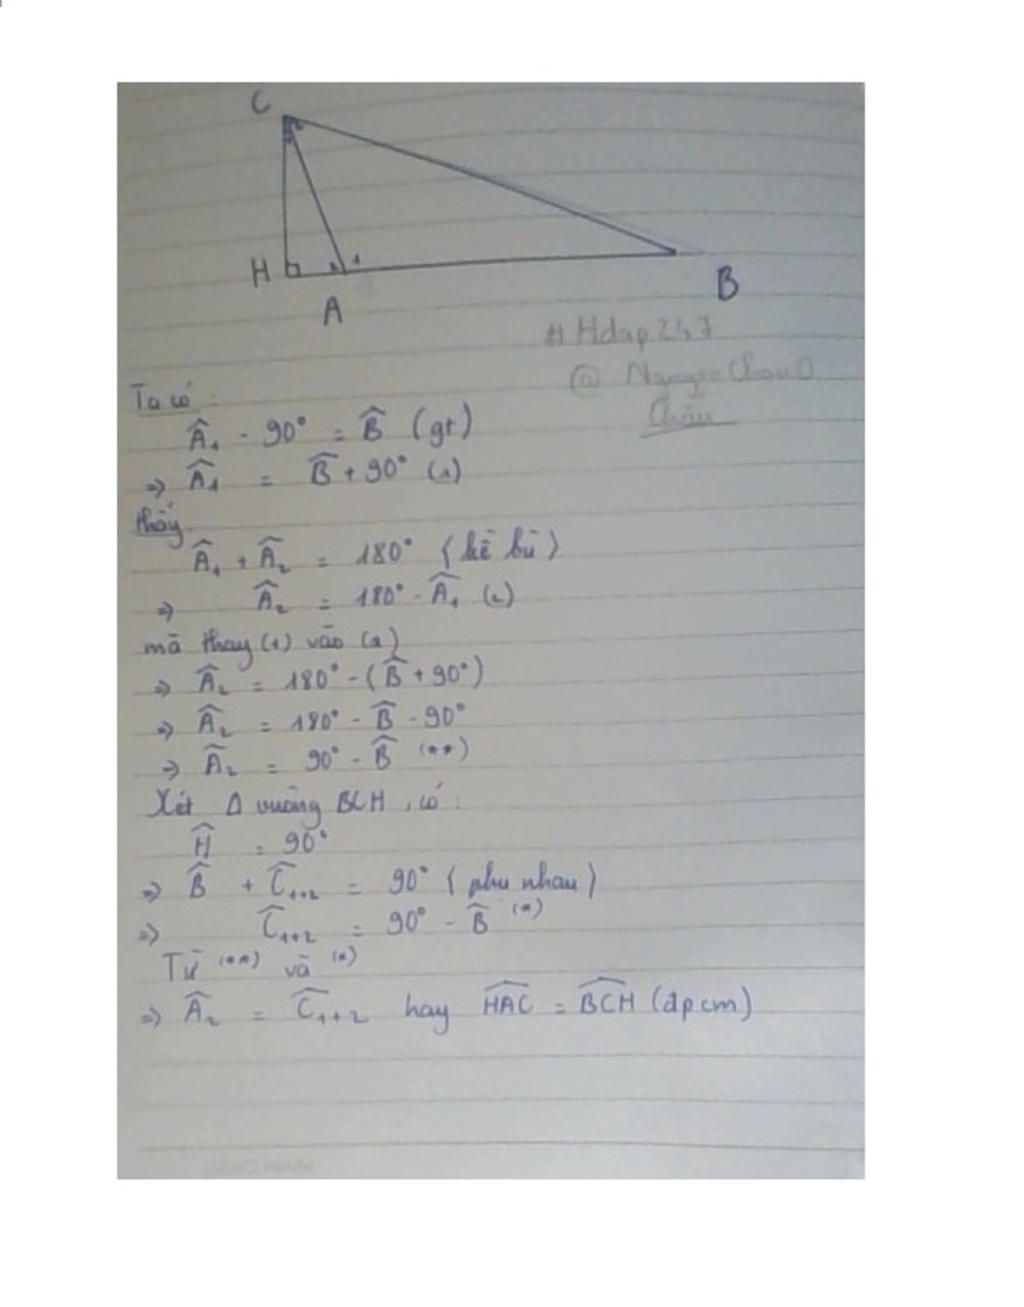 C
H
A
B
1
# Hdap 247
@ Nguyen Chau
Châu
Ta có :
Â₁ - 90° = B̂ (gt)
=> Â₁ = B̂ + 90° (1)
thấy
Â₁ + Â₂ = 180° (kề bù)
=> Â₂ = 180° - Â₁ (2)
mà thay (1) vào (2)
=> Â₂ = 180° - (B̂ + 90°)
=> Â₂ = 180° - B̂ - 90°
=> Â₂ = 90° - B̂ (**)
Xét Δ vuông BCH , có :
Ĥ = 90°
=> B̂ + Ĉ₁₊₂ = 90° (phụ nhau)
=> Ĉ₁₊₂ = 90° - B̂ (*)
Từ (**) và (*)
=> Â₂ = Ĉ₁₊₂ hay HAC = BCH (đpcm)